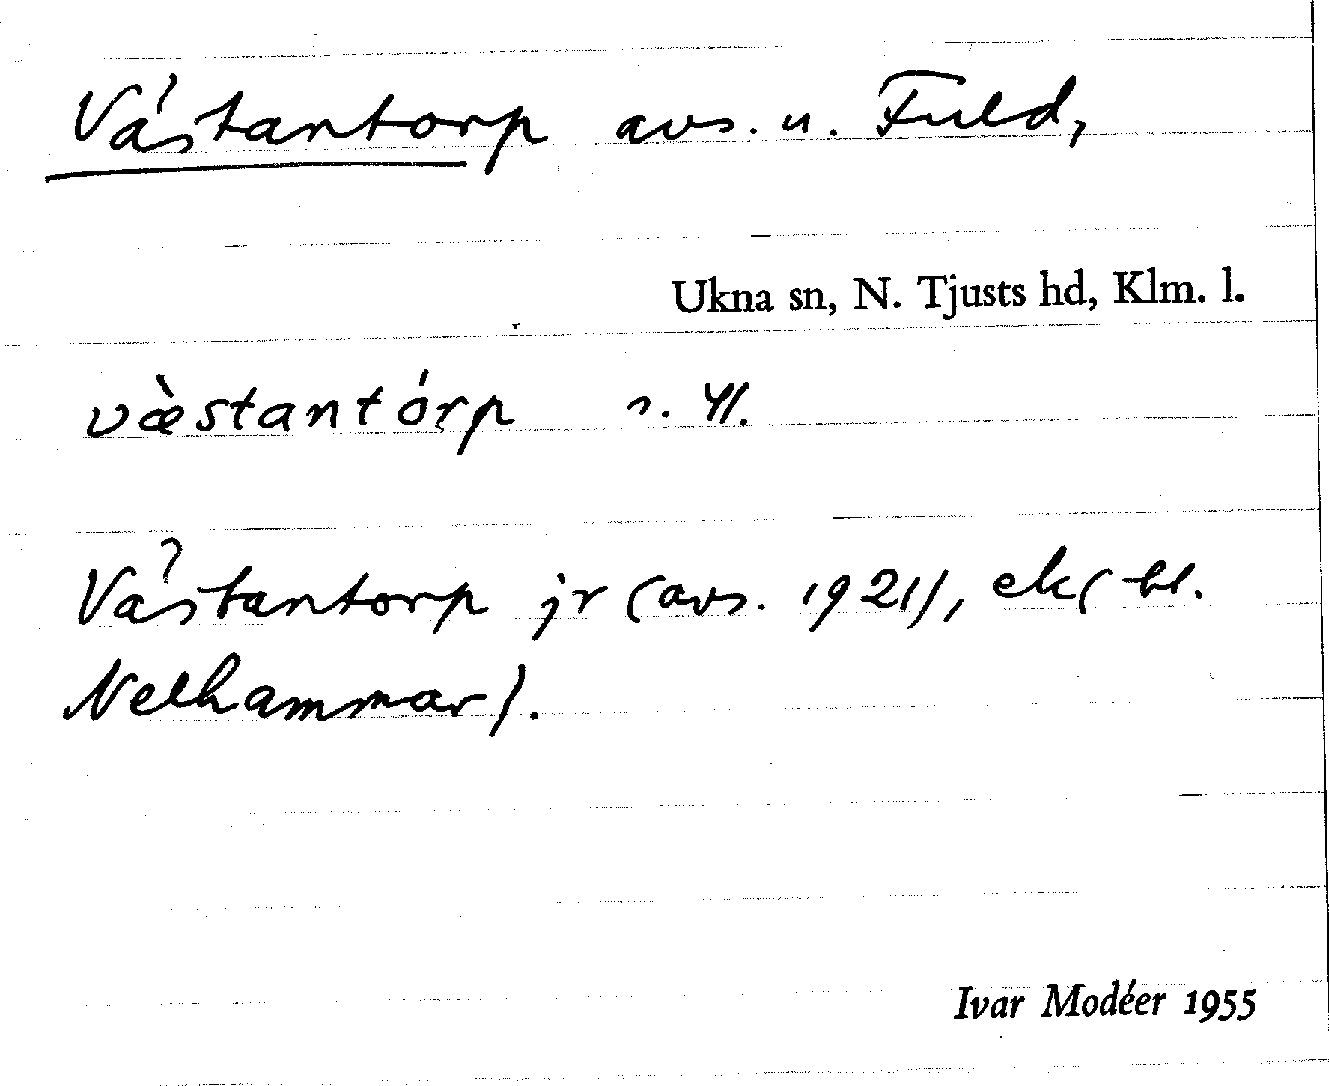 Västantorp avs. u. Fuld,
Ukna sn, N. Tjusts hd, Klm. l.
væ̀stantórp n. 41.
Västantorp jr (avs. 1921), ek( bl.
Nelhammar).
Ivar Modéer 1955